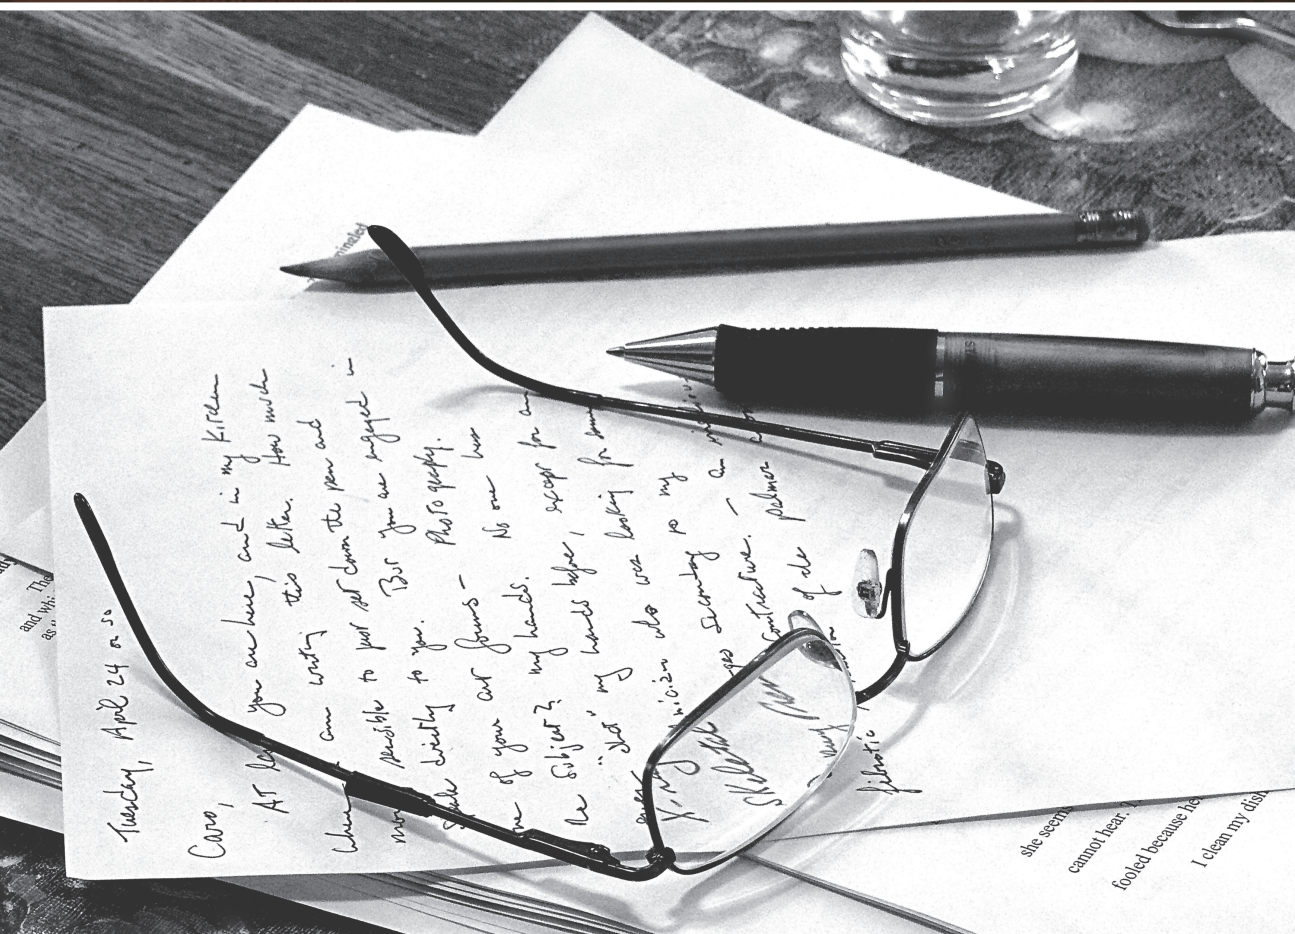 Tuesday, April 24 or so
Caro,
At you are here, and in my kitchen
when am writing this letter. How much
more sensible to just set down the pen and
directly to you. But you are engaged in
one of your art forms — Photography.
The subject? my hands. No one has
"shot" my hands before, except for an
who was looking for
X-ray to my
Skeletal secondary — an
contracture. palmar
fibrotic of the
mingled
The
and
as
she seems
cannot hear.
fooled because he
I clean my dish